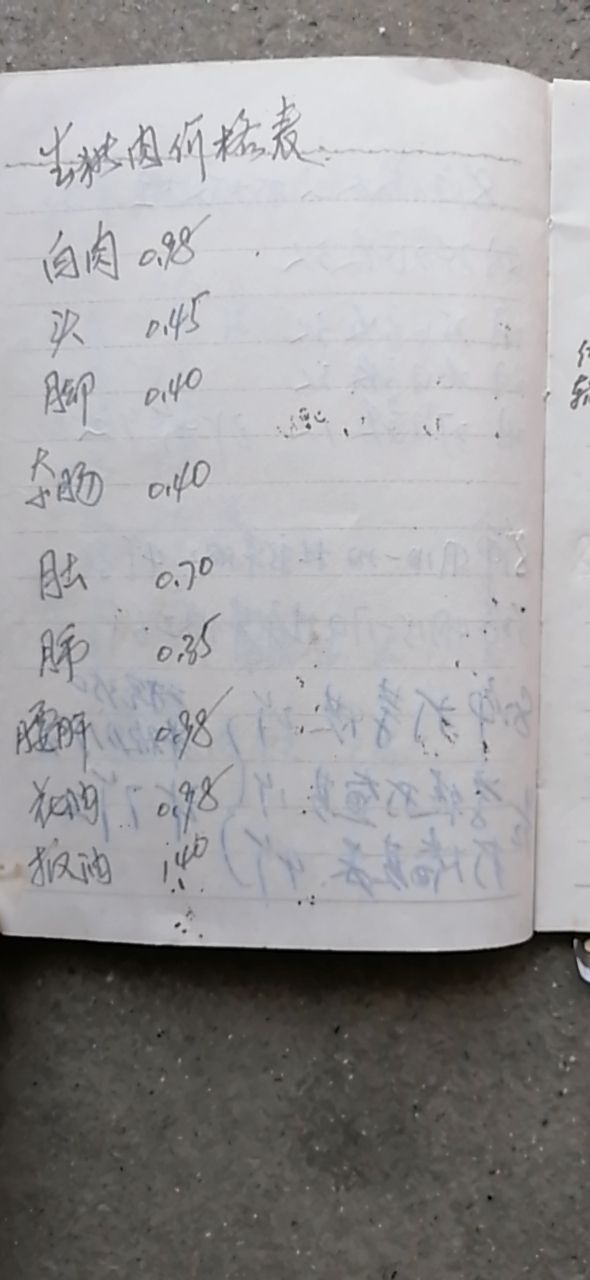 生猪肉价格表
白肉 0.98
头 0.45
脚 0.40
大小肠 0.40
肚 0.70
肺 0.35
腰肝 0.98
花油 0.98
板油 1.40